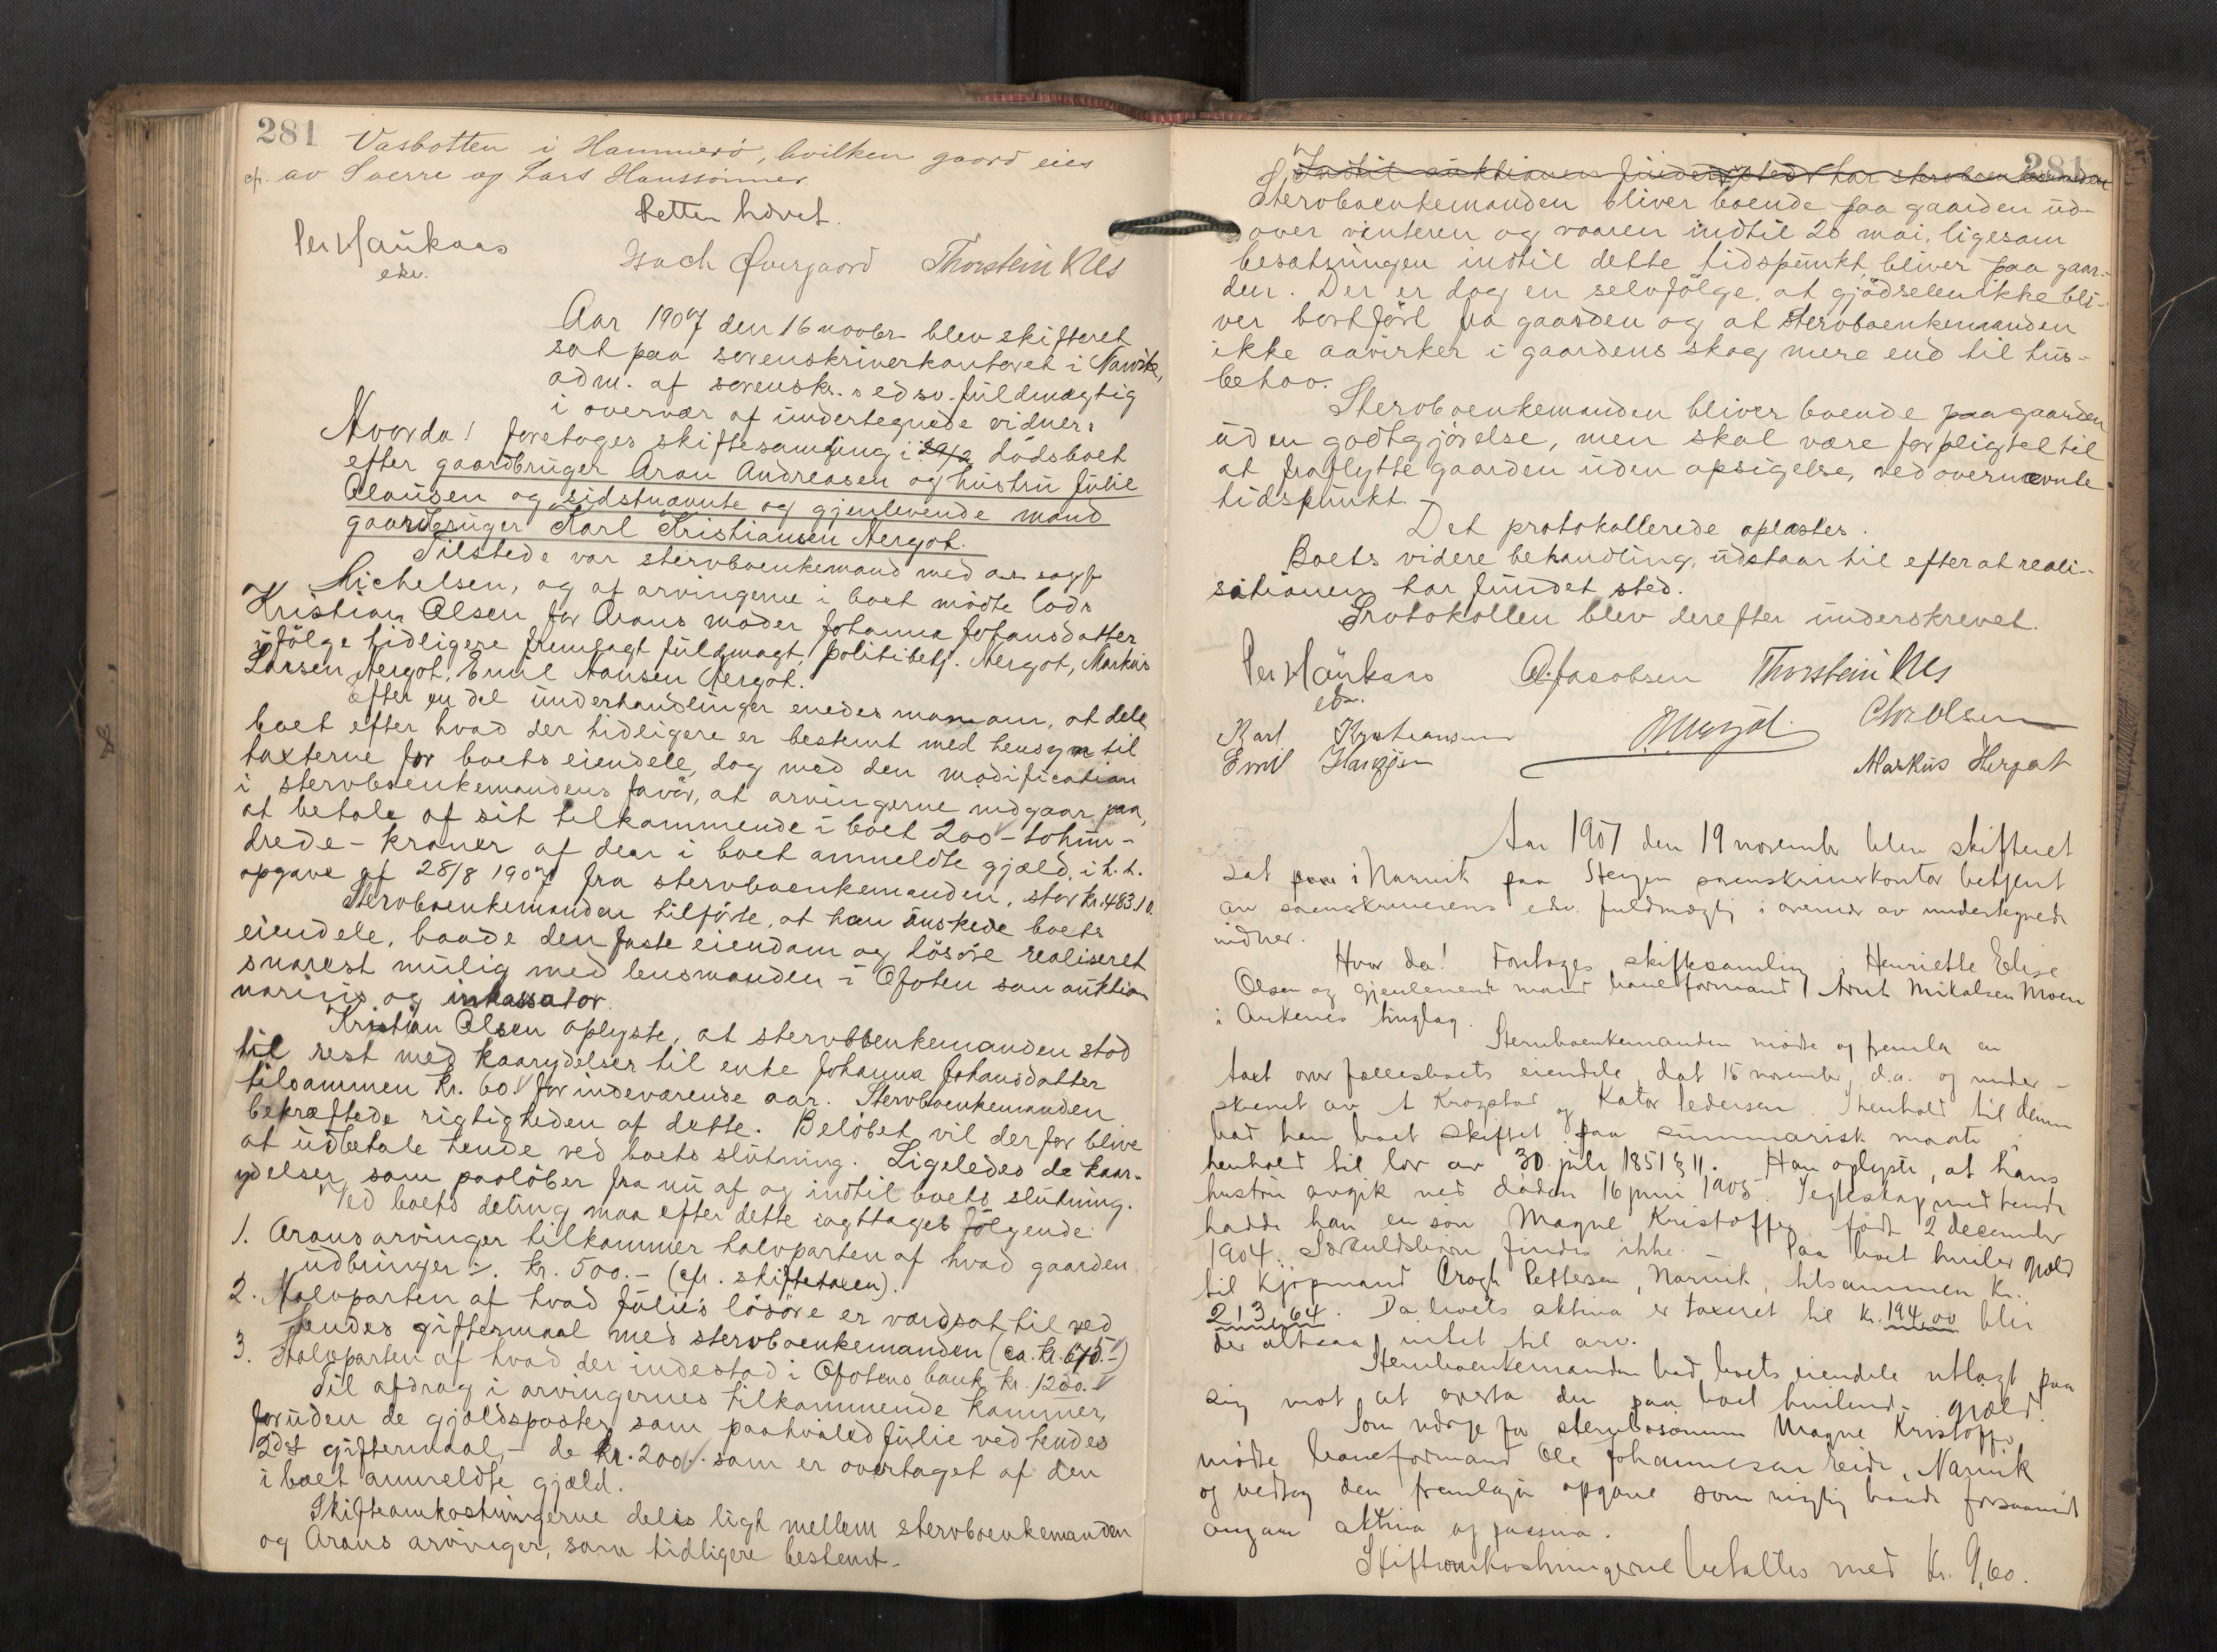 281
Vasbotten i Hammerö, hvilken gaard eies
av Sverre og Lars Hanssönner.
Retten hævet.
Per Haukaas
edv.
Isach Övergaard Thorstein Nes
Aar 1907 den 16 novbr blev skifteret
sat paa sorenskriverkontoret i Narvik,
adm. af sorenskr.s edsv. fuldmægtig
i overvær af undertegnede vidner:
Hvorda! foretoges skiftesamling i dödsboet
efter gaardbruger Aron Andreasen og hustru Julie
Olausen og sidstnævnte og gjenlevende mand
gaardbruger Karl Kristiansen Hergot.
Tilstede var stervboenkemand med
Michelsen, og af arvingerne i boet mödte
Kristian Olsen for Arons moder Johanna Johansdatter
ifölge tidligere fremlagt fuldmagt, politibetj. Hergot, Markus
Larsen Hergot, Emil Hansen Hergot.
Efter en del underhandlinger enedes man om, at dele
boet efter hvad der tidligere er bestemt med hensyn til
taxterne for boets eiendele, dog med den modification
i stervboenkemandens favör, at arvingerne indgaar paa,
at betale af sit tilkommende i boet 200 - tohun-
drede - kroner af den i boet anmeldte gjæld, i h. t.
opgave af 28/8 1907 fra stervboenkemanden, stor kr. 483.10.
Stervboenkemanden tilförte, at han önskede boets
eiendele, baade den faste eiendom og lösöre realiseret
snarest mulig med lensmanden i Ofoten som auktion
narius og inkassator.
Kristian Olsen oplyste, at stervboenkemanden stod
til rest med kaarydelser til enke Johanna Johansdatter
tilsammen kr. 60 for indeværende aar. Stervboenkemanden
bekræftede rigtigheden af dette. Belöbet vil derfor blive
at udbetale hende ved boets slutning. Ligeledes de kaar-
ydelser, som paalöber fra nu af og indtil boets slutning.
Ved boets deling maa efter dette iagttages fölgende:
1. Arons arvinger tilkommer halvparten af hvad gaarden
udbringer kr. 500.- (cfr. skiftetaxten).
2. Halvparten af hvad Julie's lösöre er værdsat til ved
hendes giftermaal med stervboenkemanden (ca. kr. 675.-)
3. Halvparten af hvad der indestod i Ofotens bank kr. 1200.
Til afdrag i arvingernes tilkommende kommer,
foruden de gjældsposter som paahviled Julie ved hendes
2det giftermaal, - de kr. 200 som er overtaget af den
i boet anmeldte gjæld.
Skifteomkostningerne deles ligt mellem stervboenkemanden
og Arons arvinger, som tidligere bestemt.
281
Indtil auktionen finder sted har stervboenkemanden
Stervboenkemanden bliver boende paa gaarden ud-
over vinteren og vaaren indtil 20 mai, ligesom
besætningen indtil dette tidspunkt bliver paa gaar-
den. Der er dog en selvfölge, at gjödselen ikke bli-
ver bortfört fra gaarden og at stervboenkemanden
ikke aavirker i gaardens skog mere end til hus-
behov.
Stervboenkemanden bliver boende paa gaarden
uden godtgjörelse, men skal være forpligtet til
at fraflytte gaarden uden opsigelse, ved overnævnte
tidspunkt.
Det protokollerede oplæstes.
Boets videre behandling, udstaar til efter at reali-
sationen har fundet sted.
Protokollen blev derefter underskrevet.
Per Haukaas A. Jacobsen Thorstein Nes
edv.
Karl Kristiansen Hergot Chr Olsen
Emil Hansen Markus Hergot
Aar 1907 den 19 november blev skifteret
sat i Narvik paa Steigen sorenskriverkontor betjent
av sorenskriverens edv. fuldmægtig i overvær av undertegnede
vidner.
Hvor da! Foretoges skiftesamling i Henriette Elise
Olsen og gjenlevende mand baneformand Arnt Mikalsen Moen
i Ankenes tinglag.
Stervboenkemanden mödte og fremla en
taxt over fællesboets eiendele, dat 15 november d.a. og under-
skrevet av A Krogstad og Kator Pedersen. I henhold til denne
bad han boet skiftet paa summarisk maate i
henhold til lov av 30 juli 1851 § 11. Han oplyste, at hans
hustru avgik ved döden 16 juni 1905. I egteskap med hende
hadde han en sön Magne Kristoffer födt 2 december
1904. Særkuldsbörn findes ikke. - Paa boet hviler gjæld
til kjöpmand Krogh Pettersen, Narvik, tilsammen kr.
213,64. Da boets aktiva er taxeret til kr. 194,00 blir
der altsaa intet til arv.
Stervboenkemanden bad boets eiendele utlagt paa
sig mot at overta den paa boet hvilende gjæld.
Som verge for stervbosönnen Magne Kristoffer
mödte baneformand Ole Johannesen Eide, Narvik
og vedtog den fremlagte opgave som rigtig baade forsaavidt
angaar aktiva og passiva.
Skifteomkostningerne betaltes med kr. 9,60.